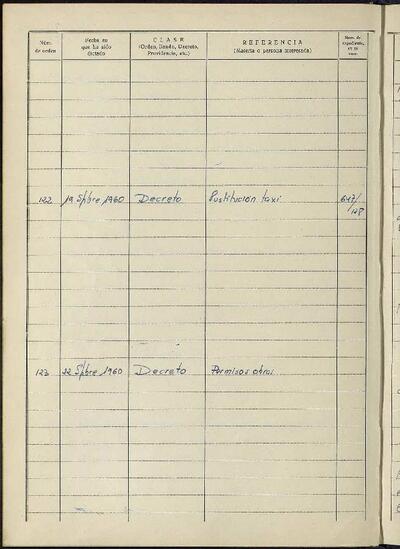 Núm. de orden
Fecha en que ha sido dictado
CLASE
(Orden, Bando, Decreto, Providencia, etc.)
REFERENCIA
(Materia o persona interesada)
Núm. de expediente, en su caso
122 19 Sptbre 1960 Decreto Sustitución taxi 647/
123 22 Sptbre 1960 Decreto Permisos obras